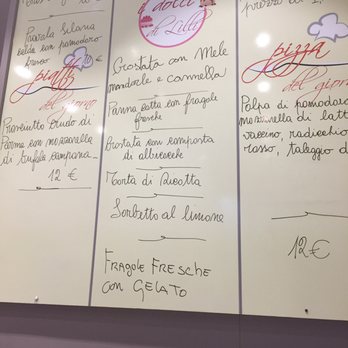 Provola Silana
calda con pomodoro
fresco
10 €
piatto
del giorno
Prosciutto crudo di
Parma con mozzarella
di bufala campana
12 €
i dolci
di Lillo
Crostata con Mele
mandorle e cannella
Panna cotta con fragole
fresche
Crostata con composta
di albicocche
Torta di Ricotta
Sorbetto al limone
FRAGOLE FRESCHE
CON GELATO
pizza
del giorno
Polpa di pomodoro
mozzarella di latt
vaccino, radicchio
rosso, taleggio d
12 €